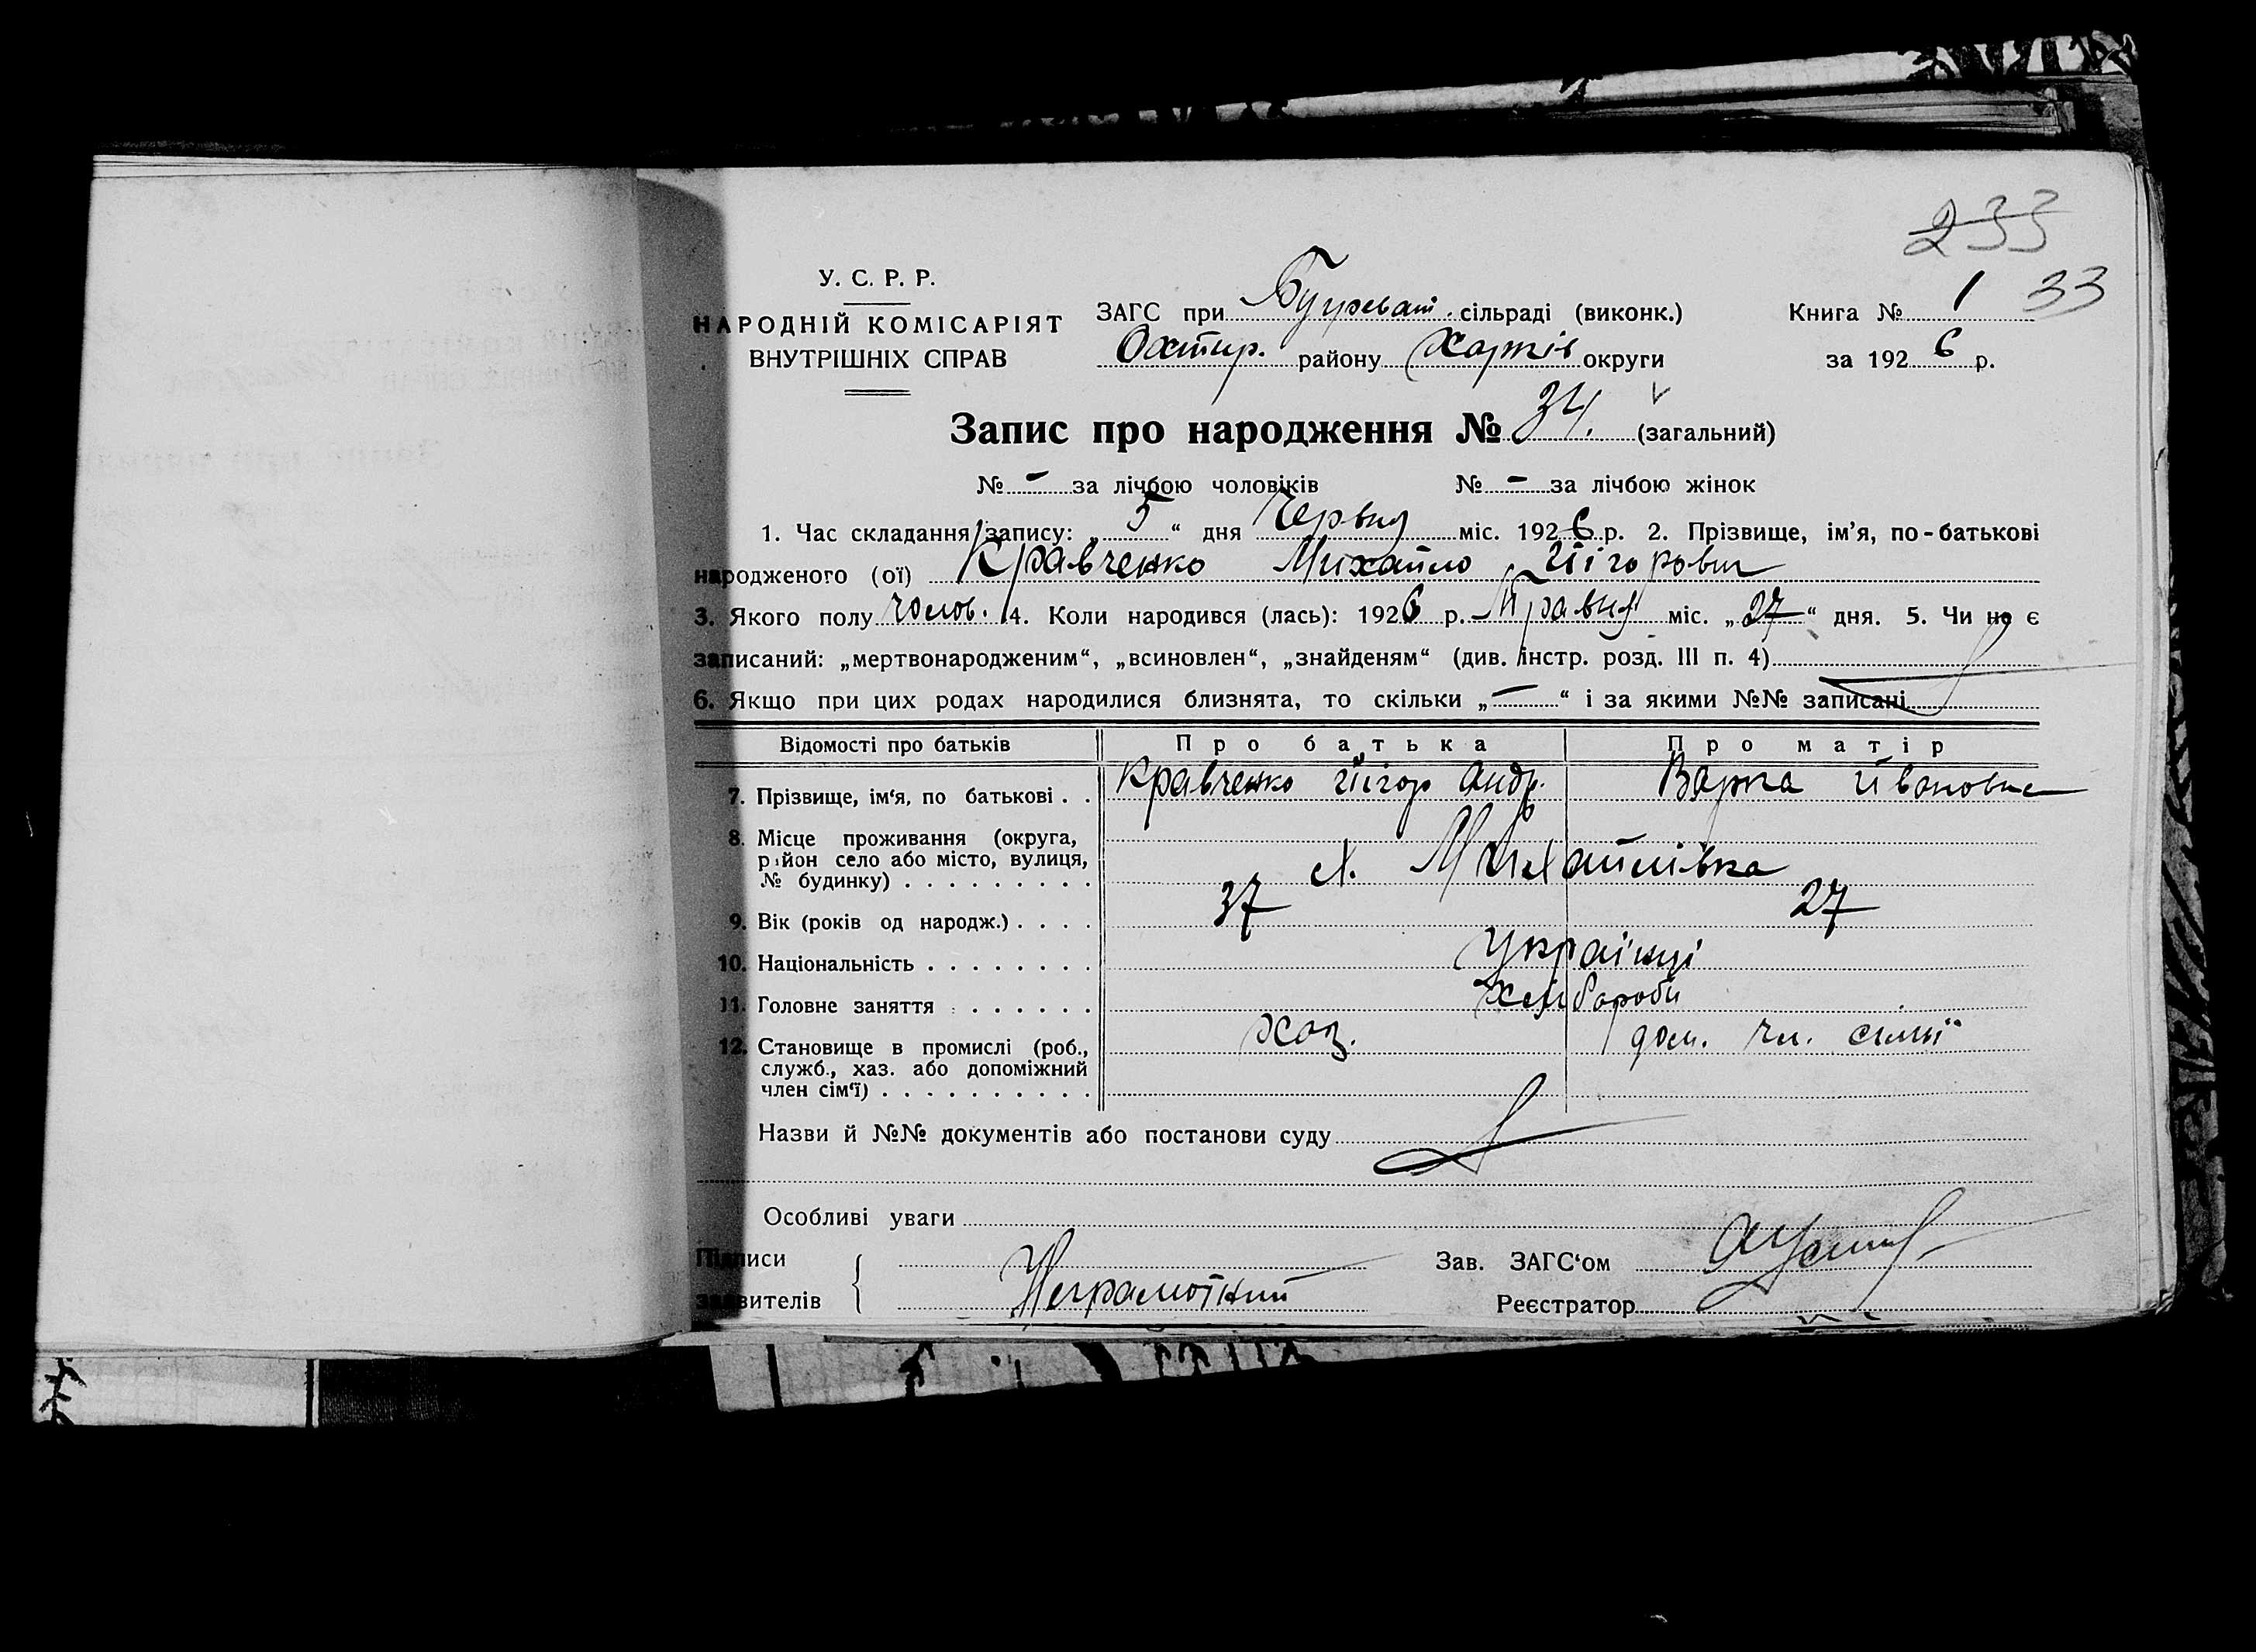 233
33
У. С. Р. Р.
НАРОДНІЙ КОМІСАРІЯТ
ВНУТРІШНІХ СПРАВ
ЗАГС при Бугреват. сільраді (виконк.)
Охтир. району Харків округи
Книга № 1
за 1926 р.
Запис про народження № 34. (загальний)
№ - за лічбою чоловіків № - за лічбою жінок
1. Час складання запису: „5“ дня Червня міс. 1926 р. 2. Прізвище, ім'я, по-батькові
народженого (ої) Кравченко Михайло Йігорович
3. Якого полу чолов. 4. Коли народився (лась): 1926 р. Травня міс. „27“ дня. 5. Чи не є
записаний: „мертвонародженим“, „всиновлен“, „знайденям“ (див. інстр. розд. III п. 4)
6. Якщо при цих родах народилися близнята, то скільки „—“ і за якими №№ записані
Відомості про батьків Про батька Про матір
7. Прізвище, ім'я, по батькові . . Кравченко Йігор Андр. Варка Івановна
8. Місце проживання (округа,
район село або місто, вулиця,
№ будинку) . . . . . . . . . х. Михайлівка
9. Вік (років од народж.) . . . . 37 27
10. Національність . . . . . . . . Українці
11. Головне заняття . . . . . . . Хлібороби
12. Становище в промислі (роб., хаз. дом. чл. сімьї
служб., хаз. або допоміжний
член сім'ї) . . . . . . . . . .
Назви й №№ документів або постанови суду
Особливі уваги
Підписи
заявителів Неграмотний
Зав. ЗАГС'ом
Реєстратор